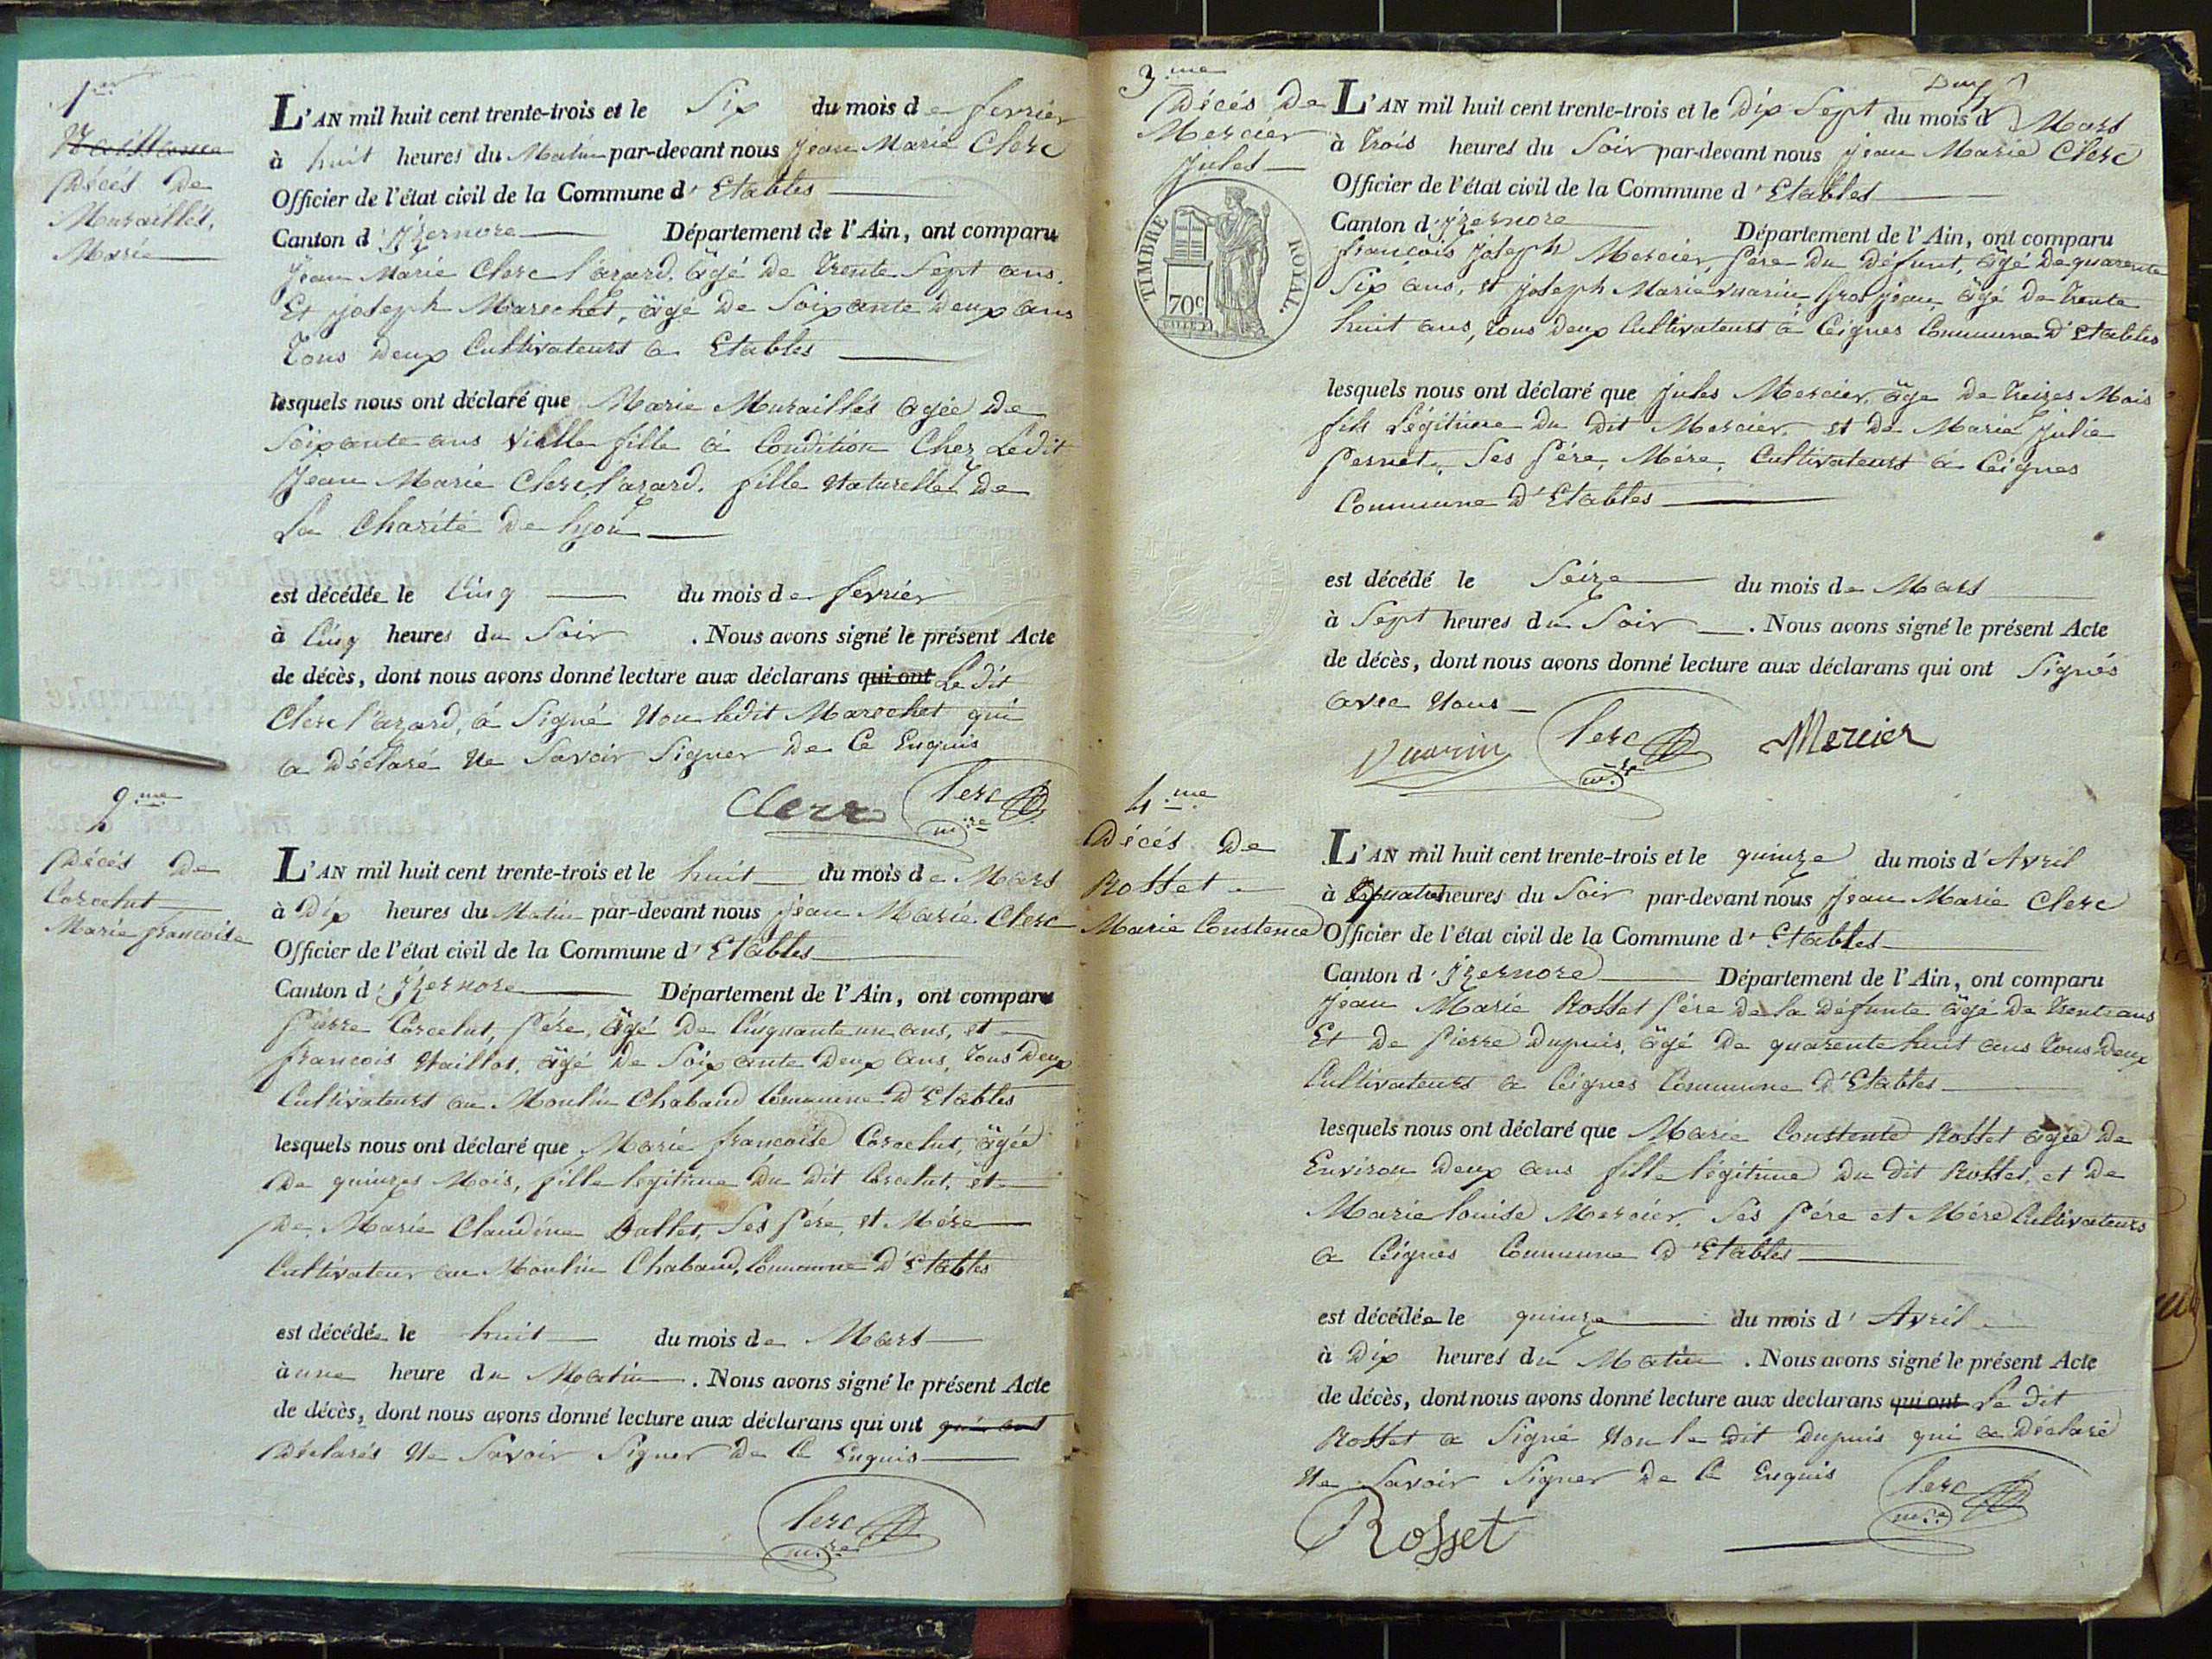 1er
Décès De
Muraillés,
Marie
L'AN mil huit cent trente-trois et le Six du mois de fevriér
à huit heures du Matin par-devant nous Jean Marie Clerc
Officier de l'état civil de la Commune d' Etables
Canton d' Izernore Département de l'Ain, ont comparu
Jean Marie Clerc Lazard, âgé De Trente Sept ans.
Et joseph Marechet, âgé De Soixante Deux ans
Tous Deux Cultivateurs a Etables
lesquels nous ont déclaré que Marie Muraillés agée De
Soixante ans Vielle fille á Condition Chez Ledit
Jean Marie Clerc Lazard. fille Naturelle De
La Charité De Lyon
est décédée le Cinq du mois de fevriér
à Cinq heures du Soir . Nous avons signé le présent Acte
de décès, dont nous avons donné lecture aux déclarans qui ont Le Dit
Clerc Lazard, á Signé Non ledit Marechet qui
a Déclaré Ne Savoir Signer De Ce Enquis
Clerc Clerc
mre
2me
Décés De
Corcelut
Marie francoise
L'AN mil huit cent trente-trois et le huit du mois de Mars
à Dix heures du Matin par-devant nous Jean Marie Clerc
Officier de l'état civil de la Commune d' Etables
Canton d' Izernore Département de l'Ain, ont comparu
Pierre Corcelut, Pére, âgé De Cinquante un ans, et
francois Vaillot, âgé De Soixante Deux ans, Tous Deux
Cultivateurs au Moulin Chabaud Commune D'Etables
lesquels nous ont déclaré que Marie francoise Corcelut, âgée
De quinzes Mois, fille legitime Du Dit Corcelut, et
De Marie Claudine Ballet, Ses Pére, et Mére
Cultivateur au Moulin Chabaud, Commune D'Etables
est décédée le huit du mois de Mars
à une heure du Matin . Nous avons signé le présent Acte
de décès, dont nous avons donné lecture aux déclarans qui ont qui ont
Déclarés Ne Savoir Signer De Ce Enquis
Clerc
mre
3me
Décés De
Mercier
Jules
TIMBRE ROYAL
70c
L'AN mil huit cent trente-trois et le Dix Sept du mois de Mars
à Trois heures du Soir par-devant nous Jean Marie Clerc
Officier de l'état civil de la Commune d' Etables
Canton d' Izernore Département de l'Ain, ont comparu
francois Joseph Mercier Pére Du Défunt, âgé De quarente
Six ans, et joseph Marie Vuarin Gros jean, âgé De Trente
huit ans, Tous Deux Cultivateurs á Ceignes Commune D'Etables
lesquels nous ont déclaré que Jules Mercier, âge De Treizes Mois
fils Légitime Du Dit Mercier, et De Marie Julie
Pernet, Ses Pére, Mere, Cultivateurs á Ceignes
Commune D'Etables
est décédé le Seize du mois de Mars
à Sept heures du Soir . Nous avons signé le présent Acte
de décès, dont nous avons donné lecture aux déclarans qui ont Signés
avec Nous
Vuarin Clerc Mercier
mre
4me
Décés De
Rosset
Marie Constence
L'AN mil huit cent trente-trois et le quinze du mois d'Avril
à quatre heures du Soir par-devant nous Jean Marie Clerc
Officier de l'état civil de la Commune d' Etables
Canton d' Izernore Département de l'Ain, ont comparu
Jean Marie Rosset Pére De la Défunte âgé De Trente ans
Et De Pierre Dupuis, âgé De quarente huit ans Tous Deux
Cultivateurs a Ceignes Commune D'Etables
lesquels nous ont déclaré que Marie Constente Rosset agée De
Environ Deux ans fille légitime Du Dit Rosset, et De
Marie Louise Mercier, Ses Pére et Mére Cultivateurs
a Ceignes Commune D'Etables
est décédée le quinze du mois d' Avril
à Dix heures du Matin . Nous avons signé le présent Acte
de décès, dont nous avons donné lecture aux declarans qui ont Le Dit
Rosset a Signé Non le Dit Dupuis qui a Déclaré
Ne Savoir Signer De Ce Enquis
Rosset Clerc
mre